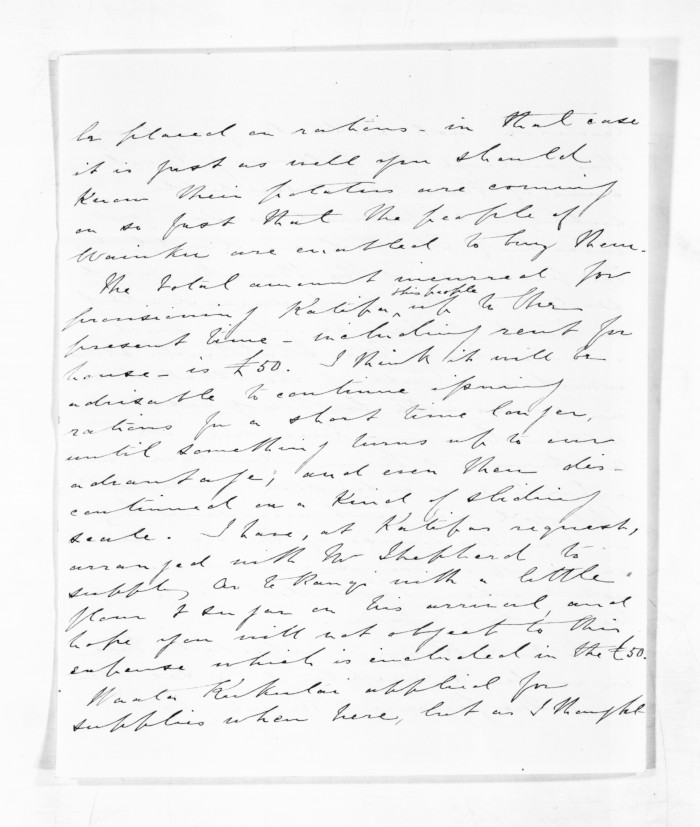 be placed on rations - in that case
it is just as well you should
know their potatoes are coming
on so fast that the people of
Waiuku are enabled to buy them.
The total amount incurred for
provisioning Katipa's people up to the
present time - including rent for
house - is £50. I think it will be
advisable to continue issuing
rations for a short time longer,
until something turns up to our
advantage; and even then dis-
continued on a kind of sliding
scale. I have, at Katipas request,
arranged with Mr Shepherd to
supply Te Rangi with a little
flour & sugar on his arrival, and
hope you will not object to this
expense which is included in the £50.
Waata Kukutai applied for
supplies when here, but as I thought